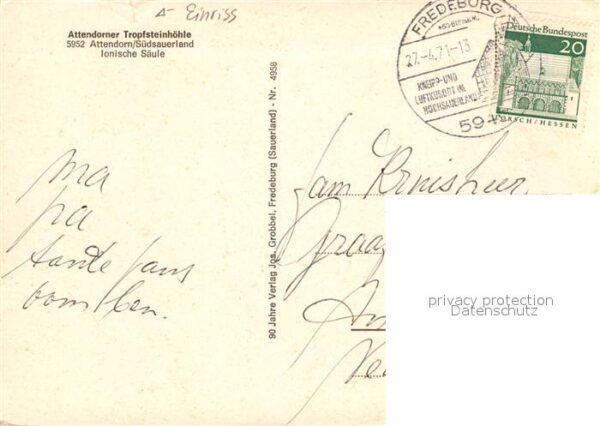 Einriss
Attendorner Tropfsteinhöhle
5952 Attendorn/Südsauerland
Ionische Säule
90 Jahre Verlag Jos. Grobbel, Fredeburg (Sauerland) - Nr. 4958
FREDEBURG
27.-4.71-13
KNEIPP-UND
LUFTKURORT IM
HOCHSAUERLAND
594
Deutsche Bundespost
20
LORSCH/HESSEN
ma
pa
tante
fam
privacy protection
Datenschutz